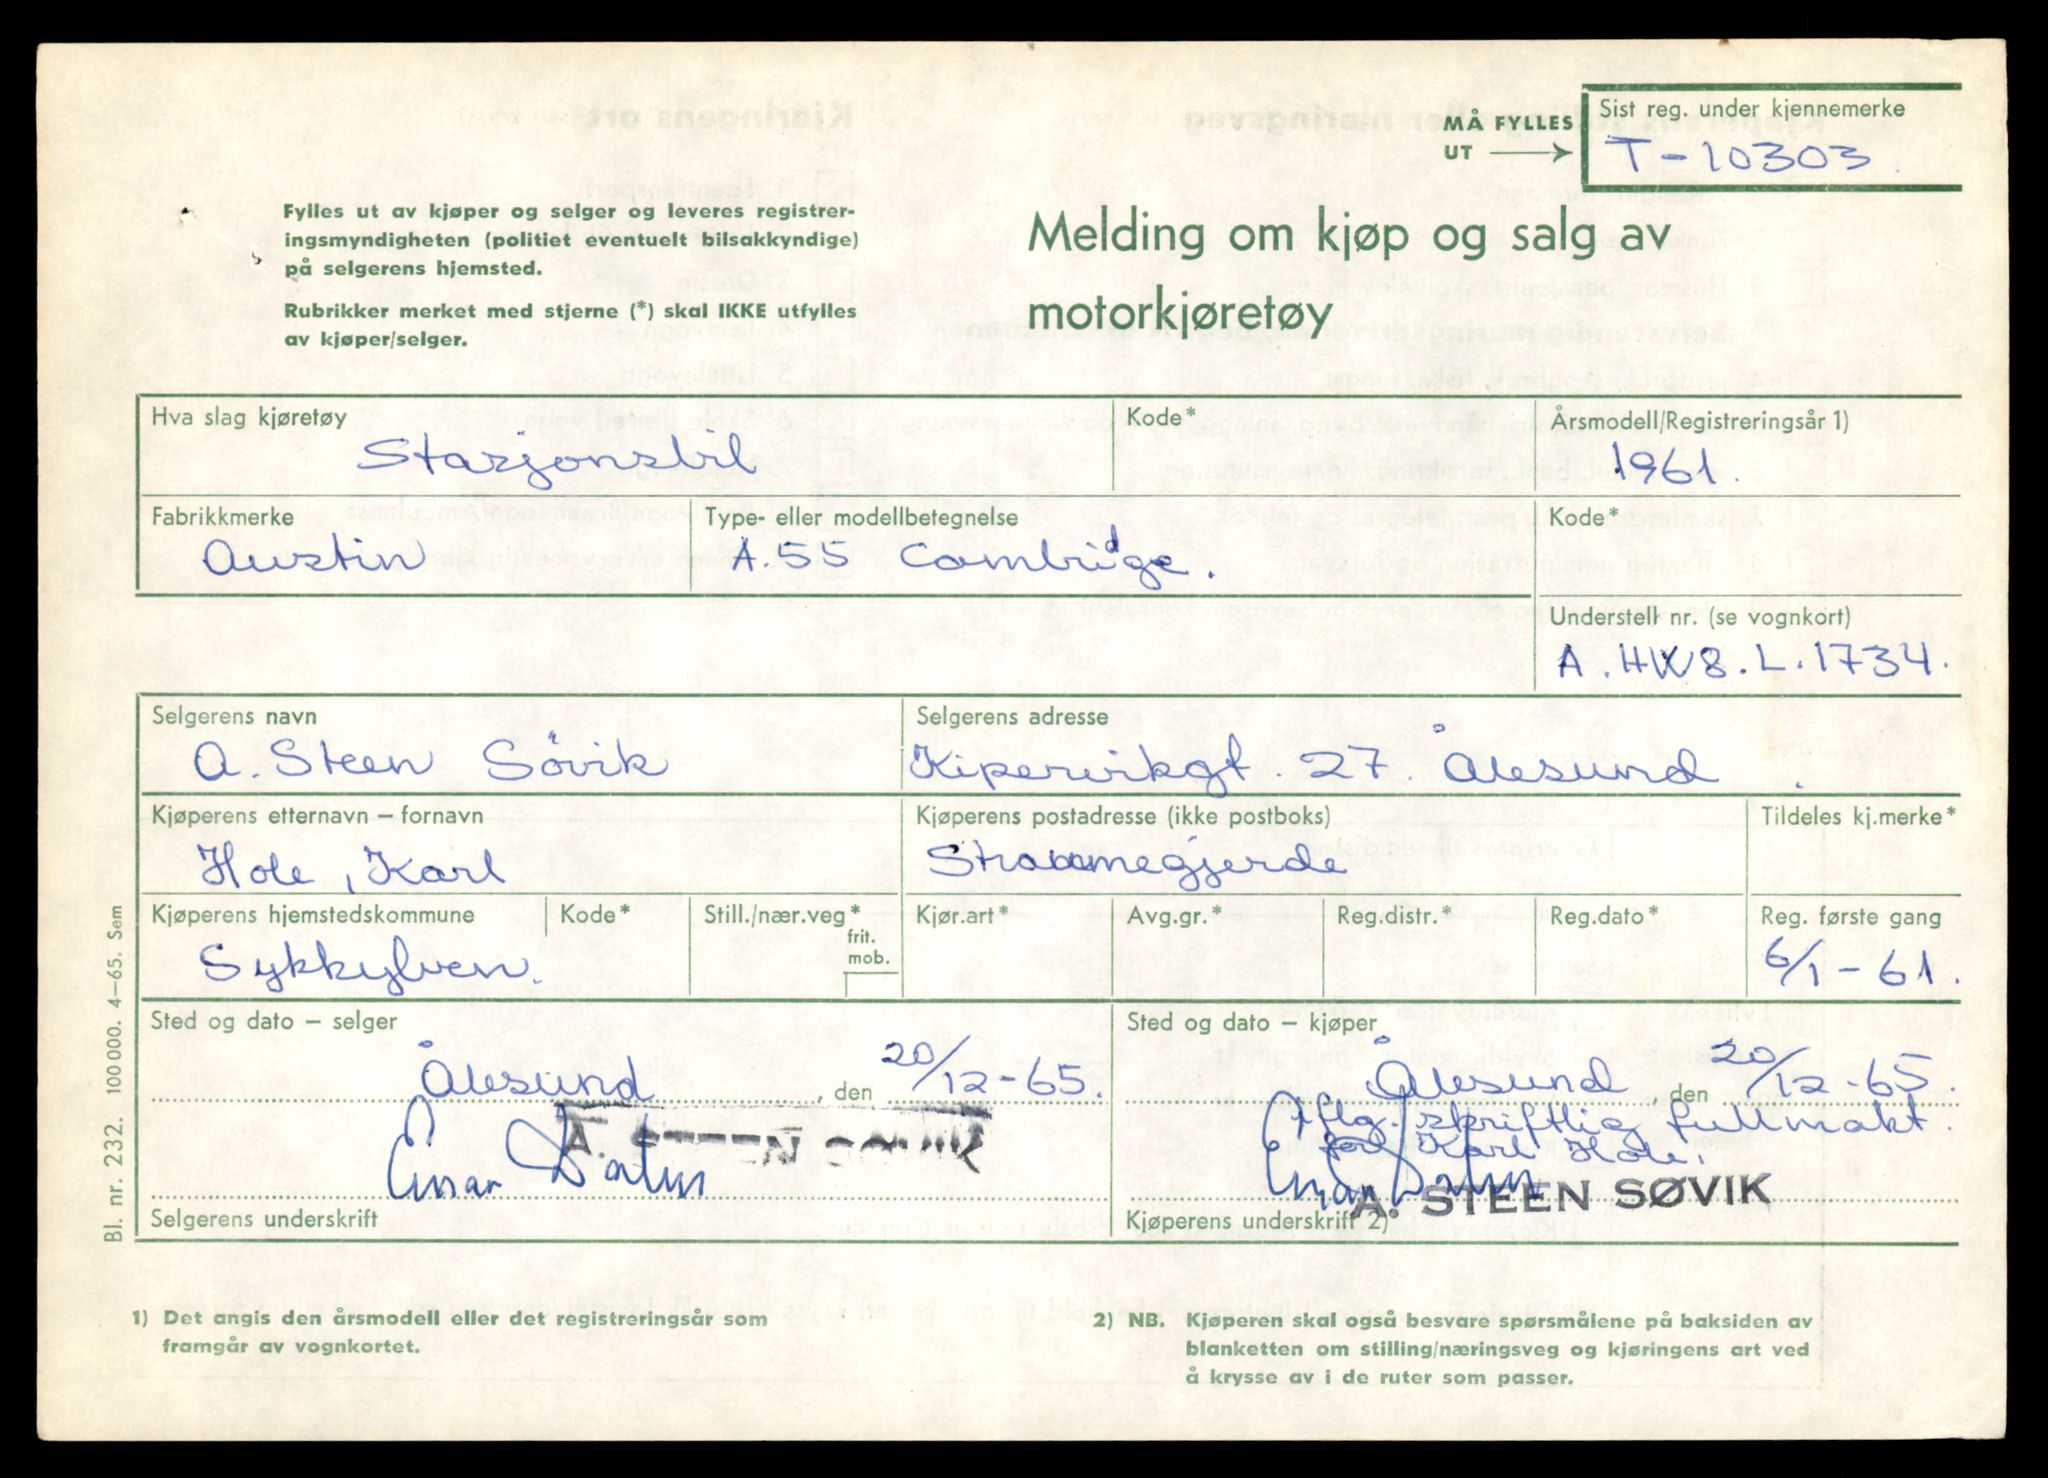 MÅ FYLLES
UT
Sist reg. under kjennemerke
T-10303
Fylles ut av kjøper og selger og leveres registrer-
ingsmyndigheten (politiet eventuelt bilsakkyndige)
på selgerens hjemsted.
Rubrikker merket med stjerne (*) skal IKKE utfylles
av kjøper/selger.
Melding om kjøp og salg av
motorkjøretøy
Hva slag kjøretøy
Stasjonsbil
Kode*
Årsmodell/Registreringsår 1)
1961.
Fabrikkmerke
Austin
Type- eller modellbetegnelse
A.55 Cambridge.
Kode*
Understell nr. (se vognkort)
A.HW8.L.1734.
Selgerens navn
A. Steen Søvik
Selgerens adresse
Kipervikgt. 27. Ålesund.
Kjøperens etternavn – fornavn
Hole, Karl
Kjøperens postadresse (ikke postboks)
Straumegjerde
Tildeles kj.merke*
Kjøperens hjemstedskommune
Sykkylven.
Kode*
Still./nær.veg*
frit.
mob.
Kjør.art*
Avg.gr.*
Reg.distr.*
Reg.dato*
Reg. første gang
6/1-61.
Sted og dato – selger
Ålesund, den 20/12-65.
A. STEEN SØVIK
Einar
Selgerens underskrift
Sted og dato – kjøper
Ålesund, den 20/12-65.
Iflg. skriftlig fullmakt.
for Karl Hole.
Einar
A. STEEN SØVIK
Kjøperens underskrift 2)
Bl. nr. 232. 100 000. 4–65. Sem
1) Det angis den årsmodell eller det registreringsår som
framgår av vognkortet.
2) NB. Kjøperen skal også besvare spørsmålene på baksiden av
blanketten om stilling/næringsveg og kjøringens art ved
å krysse av i de ruter som passer.